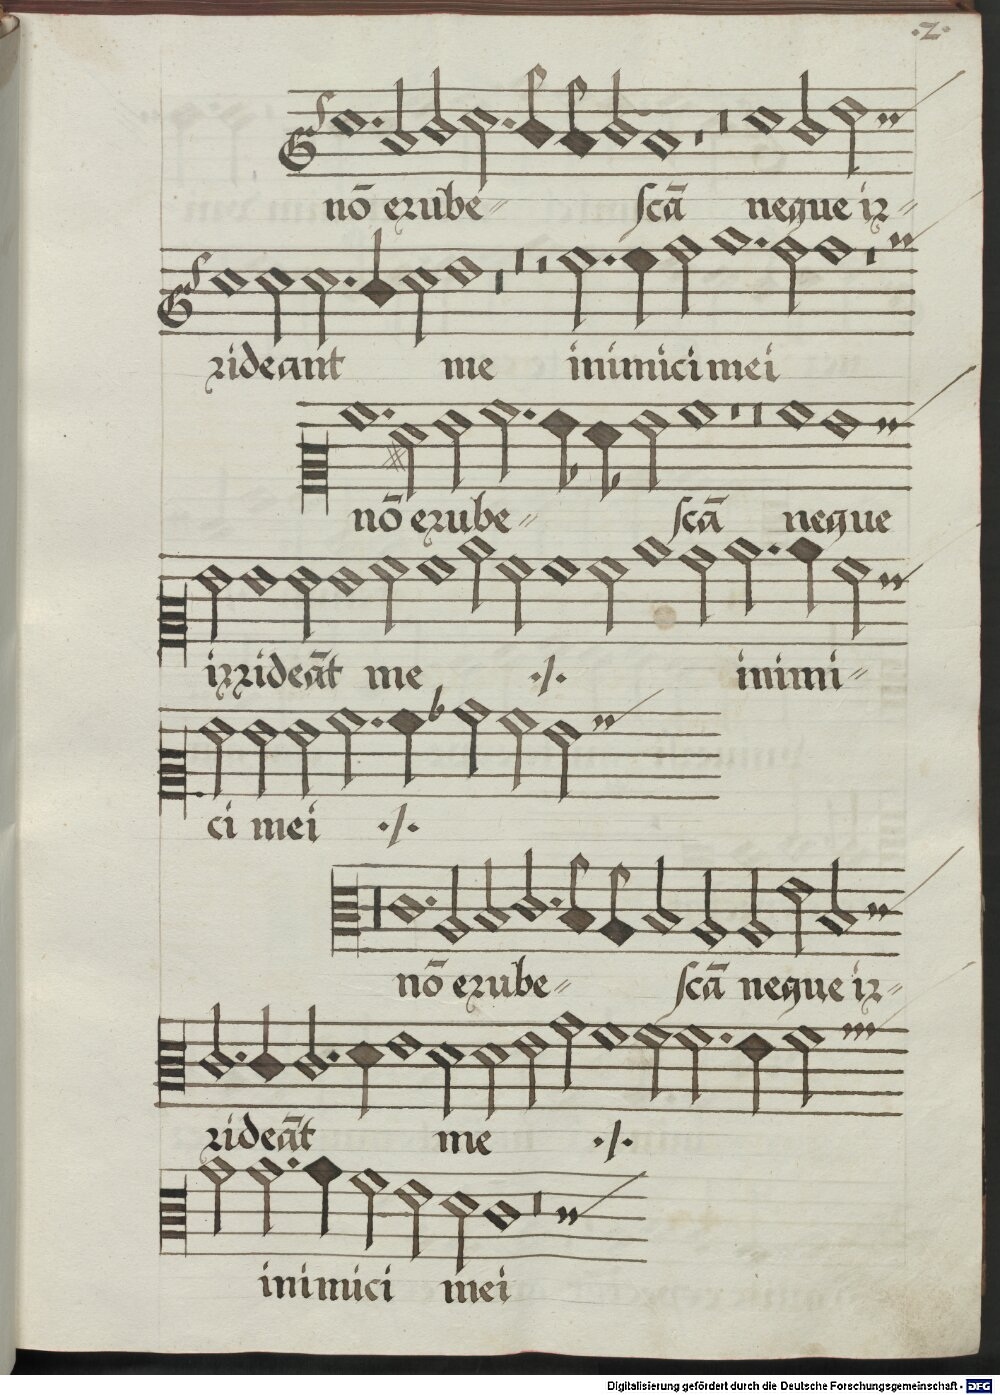 ·2·
nō erube= scā neque ir=
rideant me inimici mei
nō erube= scā neque
irrideāt me ·/· inimi=
ci mei ·/·
nō erube= scā neque ir=
rideāt me ·/·
inimici mei
Digitalisierung gefördert durch die Deutsche Forschungsgemeinschaft - DFG